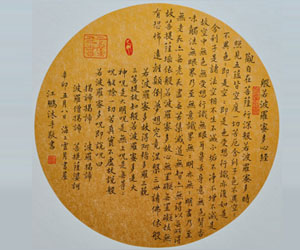 般若波羅蜜多心經
觀自在菩薩行深般若波羅蜜多時
照見五蘊皆空度一切苦厄舍利子色不異空空
不異色色即是空空即是色受想行識亦復如是
舍利子是諸法空相不生不滅不垢不淨不增不減是
故空中無色無受想行識無眼耳鼻舌身意無色聲香
味觸法無眼界乃至無意識界無無明亦無無明盡乃至
無老死亦無老死盡無苦集滅道無智亦無得以無所得
故菩提薩埵依般若波羅蜜多故心無罣礙無罣礙故無
有恐怖遠離顛倒夢想究竟涅槃三世諸佛依般
若波羅蜜多故得阿耨多羅三藐
三菩提故知般若波羅蜜多是大
神咒是大明咒是無上咒是無等等
咒能除一切苦真實不虛故說般
若波羅蜜多咒即說咒曰
揭諦揭諦 波羅揭諦
波羅僧揭諦 菩提薩婆訶
辛卯三月八日
江鵬沐手敬書